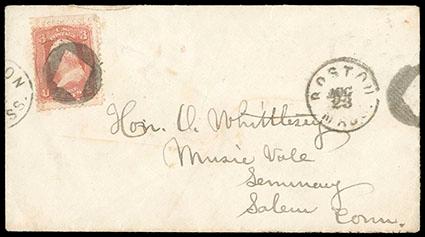 3 3
ON
SS.
BOSTON
AUG
23
MASS.
Hon. O. Whittlesey
Music Vale
Seminary
Salem
Conn.